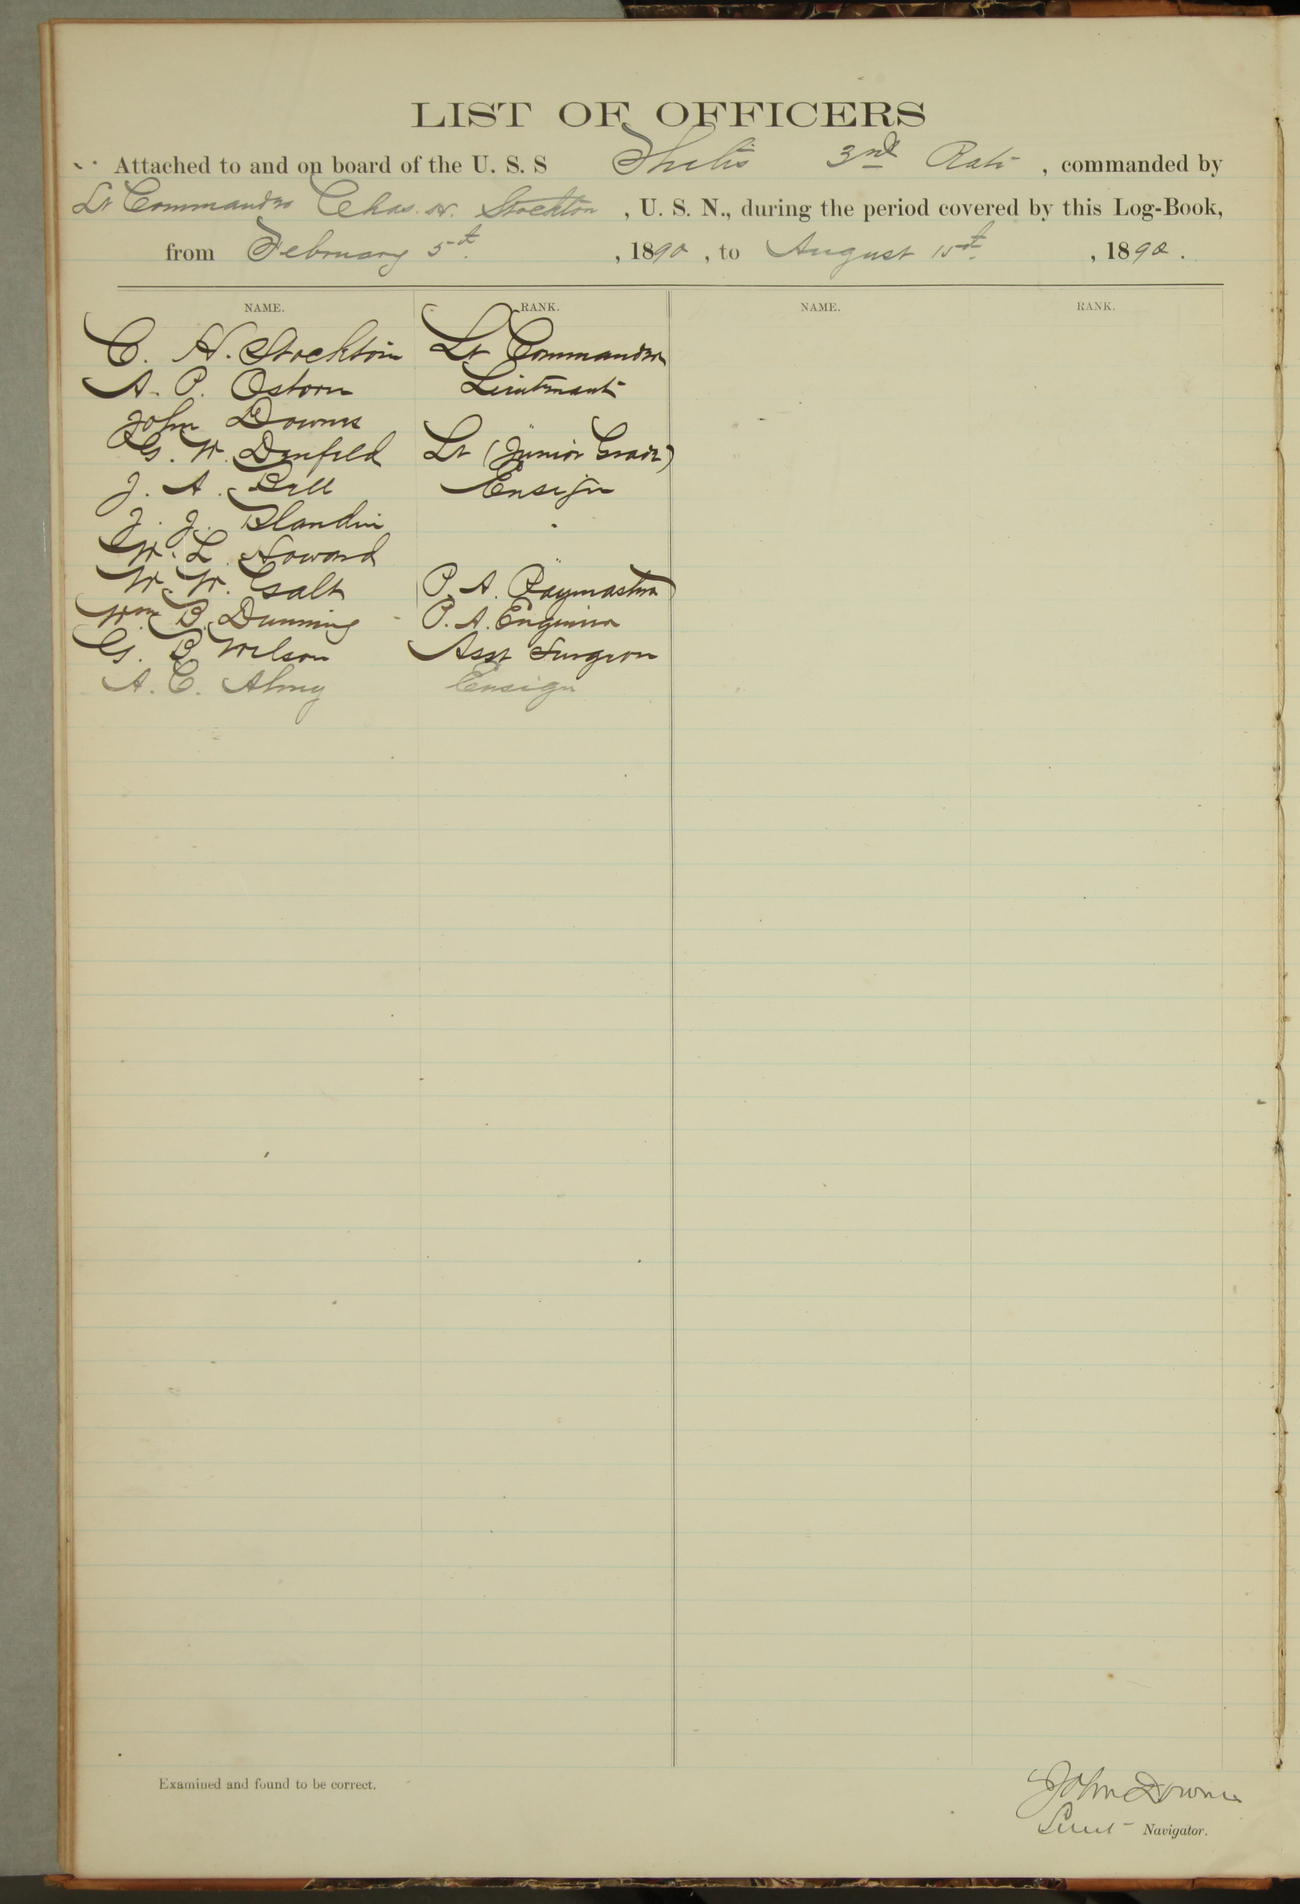 LIST OF OFFICERS
Attached to and on board of the U. S. S Thetis 3rd Rate, commanded by
Lt Commander Chas. H. Stockton, U. S. N., during the period covered by this Log-Book,
from February 5th, 1890, to August 15th, 1890.
NAME. RANK. NAME. RANK.
C. H. Stockton Lt Commander
A. P. Osborn Lieutenant
John Downes
G. W. Denfeld Lt (Junior Grade)
J. A. Bell Ensign
J. J. Blandin "
W. L. Howard
W. W. Galt P. A. Paymaster
Wm B. Dunning P. A. Engineer
G. B. Wilson Asst Surgeon
A. C. Almy Ensign
Examined and found to be correct.
John Downes
Lieut Navigator.